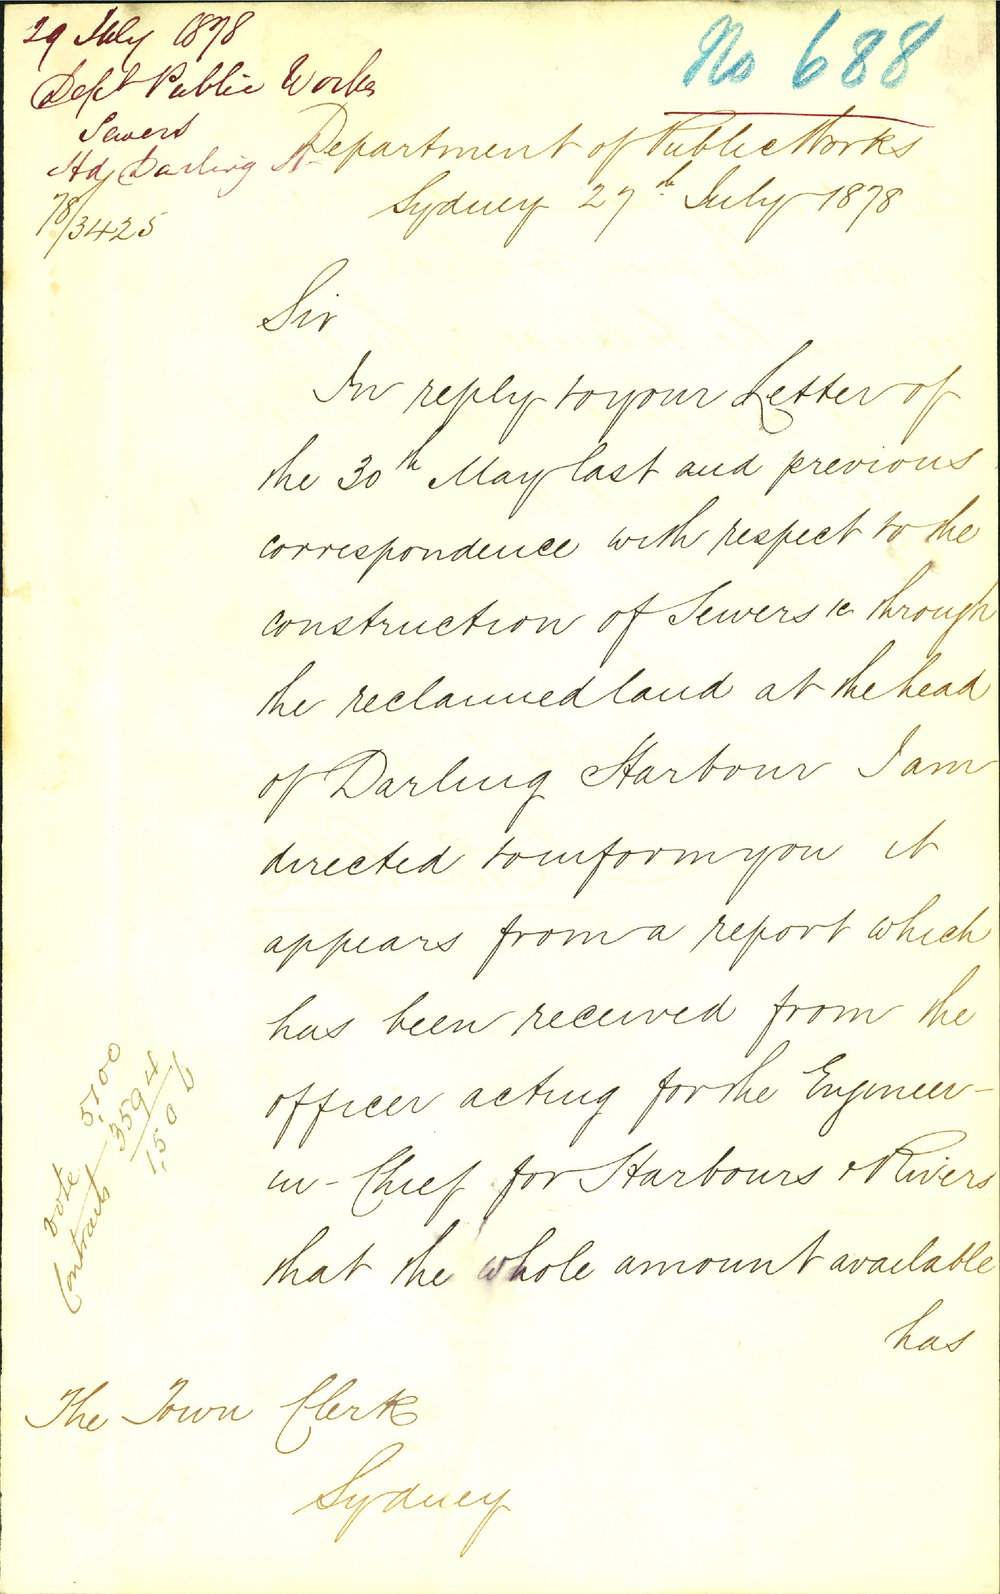 29 July 1878
Dept Public Works
Sewers
Hd Darling H
78/3425
No 688
Department of Public Works
Sydney 27th July 1878
Sir
In reply to your Letter of
the 30th May last and previous
correspondence with respect to the
construction of Sewers &c through
the reclaimed land at the head
of Darling Harbour I am
directed to inform you it
appears from a report which
has been received from the
officer acting for the Engineer-
in-Chief for Harbours & Rivers
that the whole amount available
has
Vote 5,100
Contracts 3594
1,506
The Town Clerk
Sydney